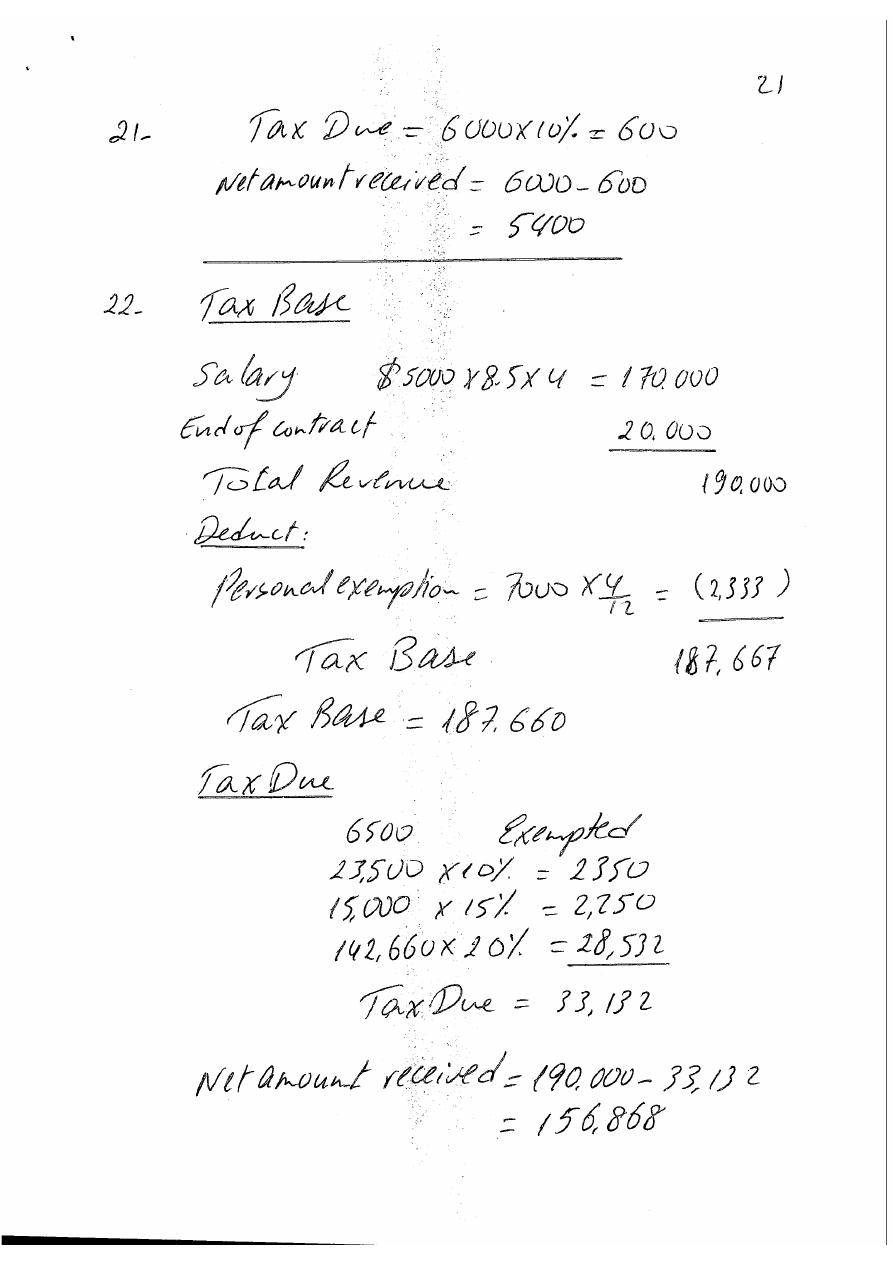 21
21- Tax Due = 6000X10% = 600
Net amount received = 6000 - 600
= 5400
22- Tax Base
Salary $5000 X 8.5 X 4 = 170.000
End of contract 20.000
Total Revenue 190.000
Deduct:
Personal exemption = 7000 X 4/12 = (2,333)
Tax Base 187,667
Tax Base = 187.660
Tax Due
6500 Exempted
23,500 X 10% = 2350
15,000 X 15% = 2,250
142,660 X 20% = 28,532
Tax Due = 33,132
Net amount received = 190.000 - 33,132
= 156,868